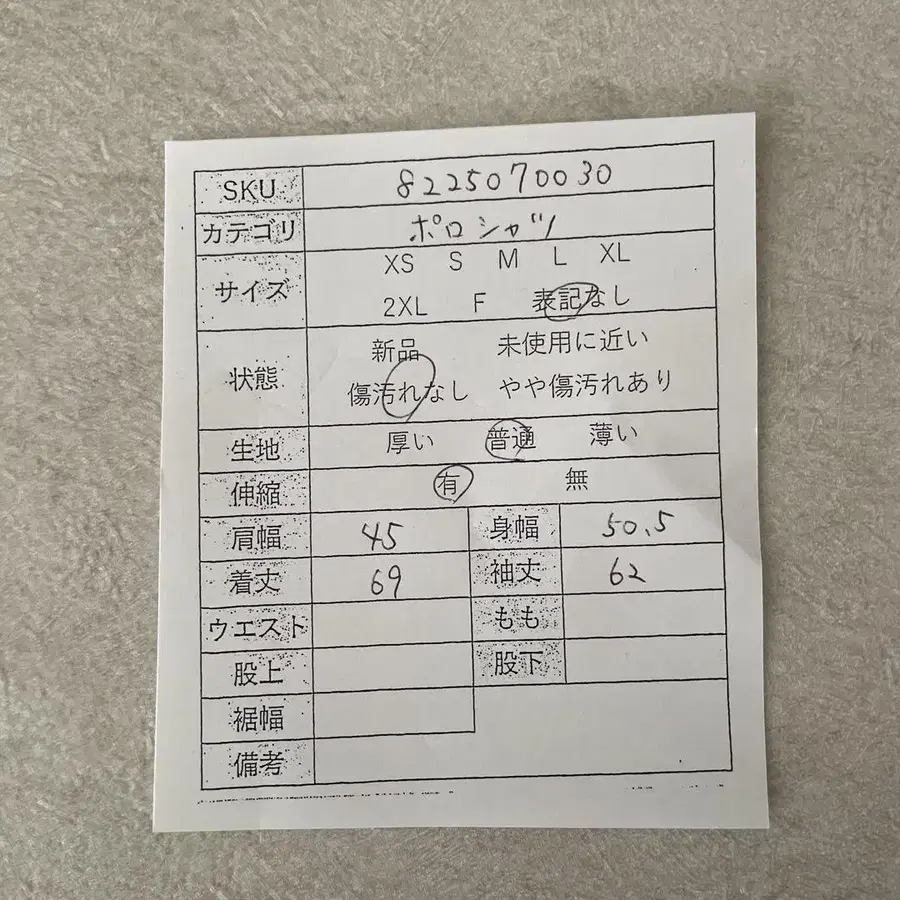 SKU 8225070030
カテゴリ ポロシャツ
サイズ XS S M L XL
2XL F 表記なし
状態 新品 未使用に近い
傷汚れなし やや傷汚れあり
生地 厚い 普通 薄い
伸縮 有 無
肩幅 45 身幅 50.5
着丈 69 袖丈 62
ウエスト もも
股上 股下
裾幅
備考